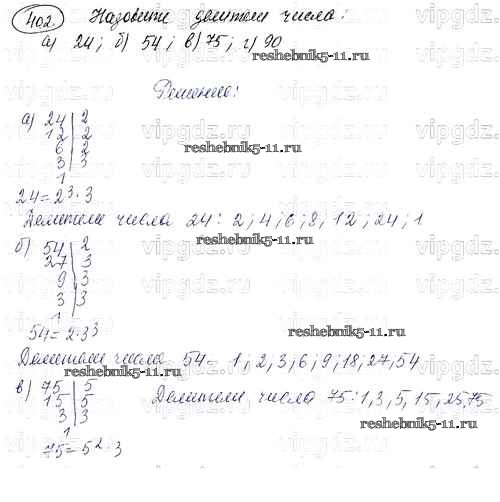 402 Назовите делители числа:
а) 24; б) 54; в) 75; г) 90
reshebnik5-11.ru
Решение:
vipgdz.ru vipgdz.ru vipgdz.ru
а) 24 | 2
12 | 2
6 | 2
3 | 3
1
reshebnik5-11.ru
24 = 2³ · 3
Делители числа 24: 2; 4; 6; 8, 12; 24; 1
б) 54 | 2
27 | 3
9 | 3
3 | 3
1
54 = 2 · 3³
reshebnik5-11.ru
Делители числа 54 = 1, 2, 3, 6, 9, 18, 27, 54
в) 75 | 5
15 | 5
3 | 3
1
Делители числа 75: 1, 3, 5, 15, 25, 75
reshebnik5-11.ru
75 = 5² · 3